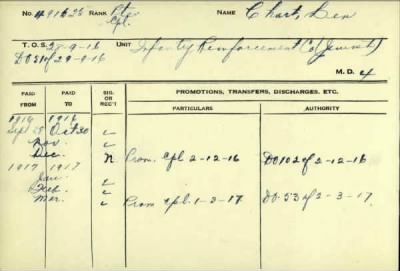 No. #91625 RANK Pte NAME Chart, Ben
Cpl.
T.O.S. 28-9-16 UNIT Infantry Reinforcement Co (Jewish)
DO 51 of 29-9-16
M.D. 4
PAID FROM PAID TO SIG. OR REC'T PROMOTIONS, TRANSFERS, DISCHARGES, ETC.
PARTICULARS AUTHORITY
1916 1916
Sept 28 Oct 30
Nov.
Dec. n Prom. Cpl 2-12-16 DO 102 of 2-12-16
1917 1917
Jan.
Feb.
Mar. Prom Cpl. 1-3-17 DO. 53 of 2-3-17.